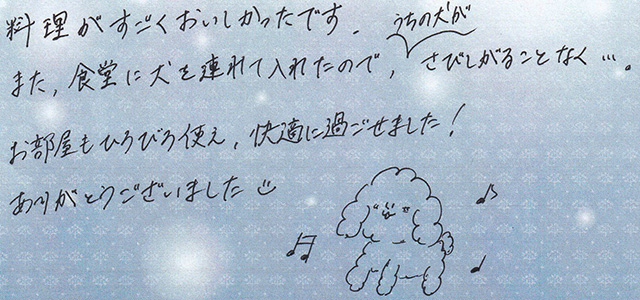 料理がすごくおいしかったです。
うちの犬が
また、食堂に犬を連れて入れたので、さびしがることなく…。
お部屋もひろびろ使え、快適に過ごせました!
ありがとうございました